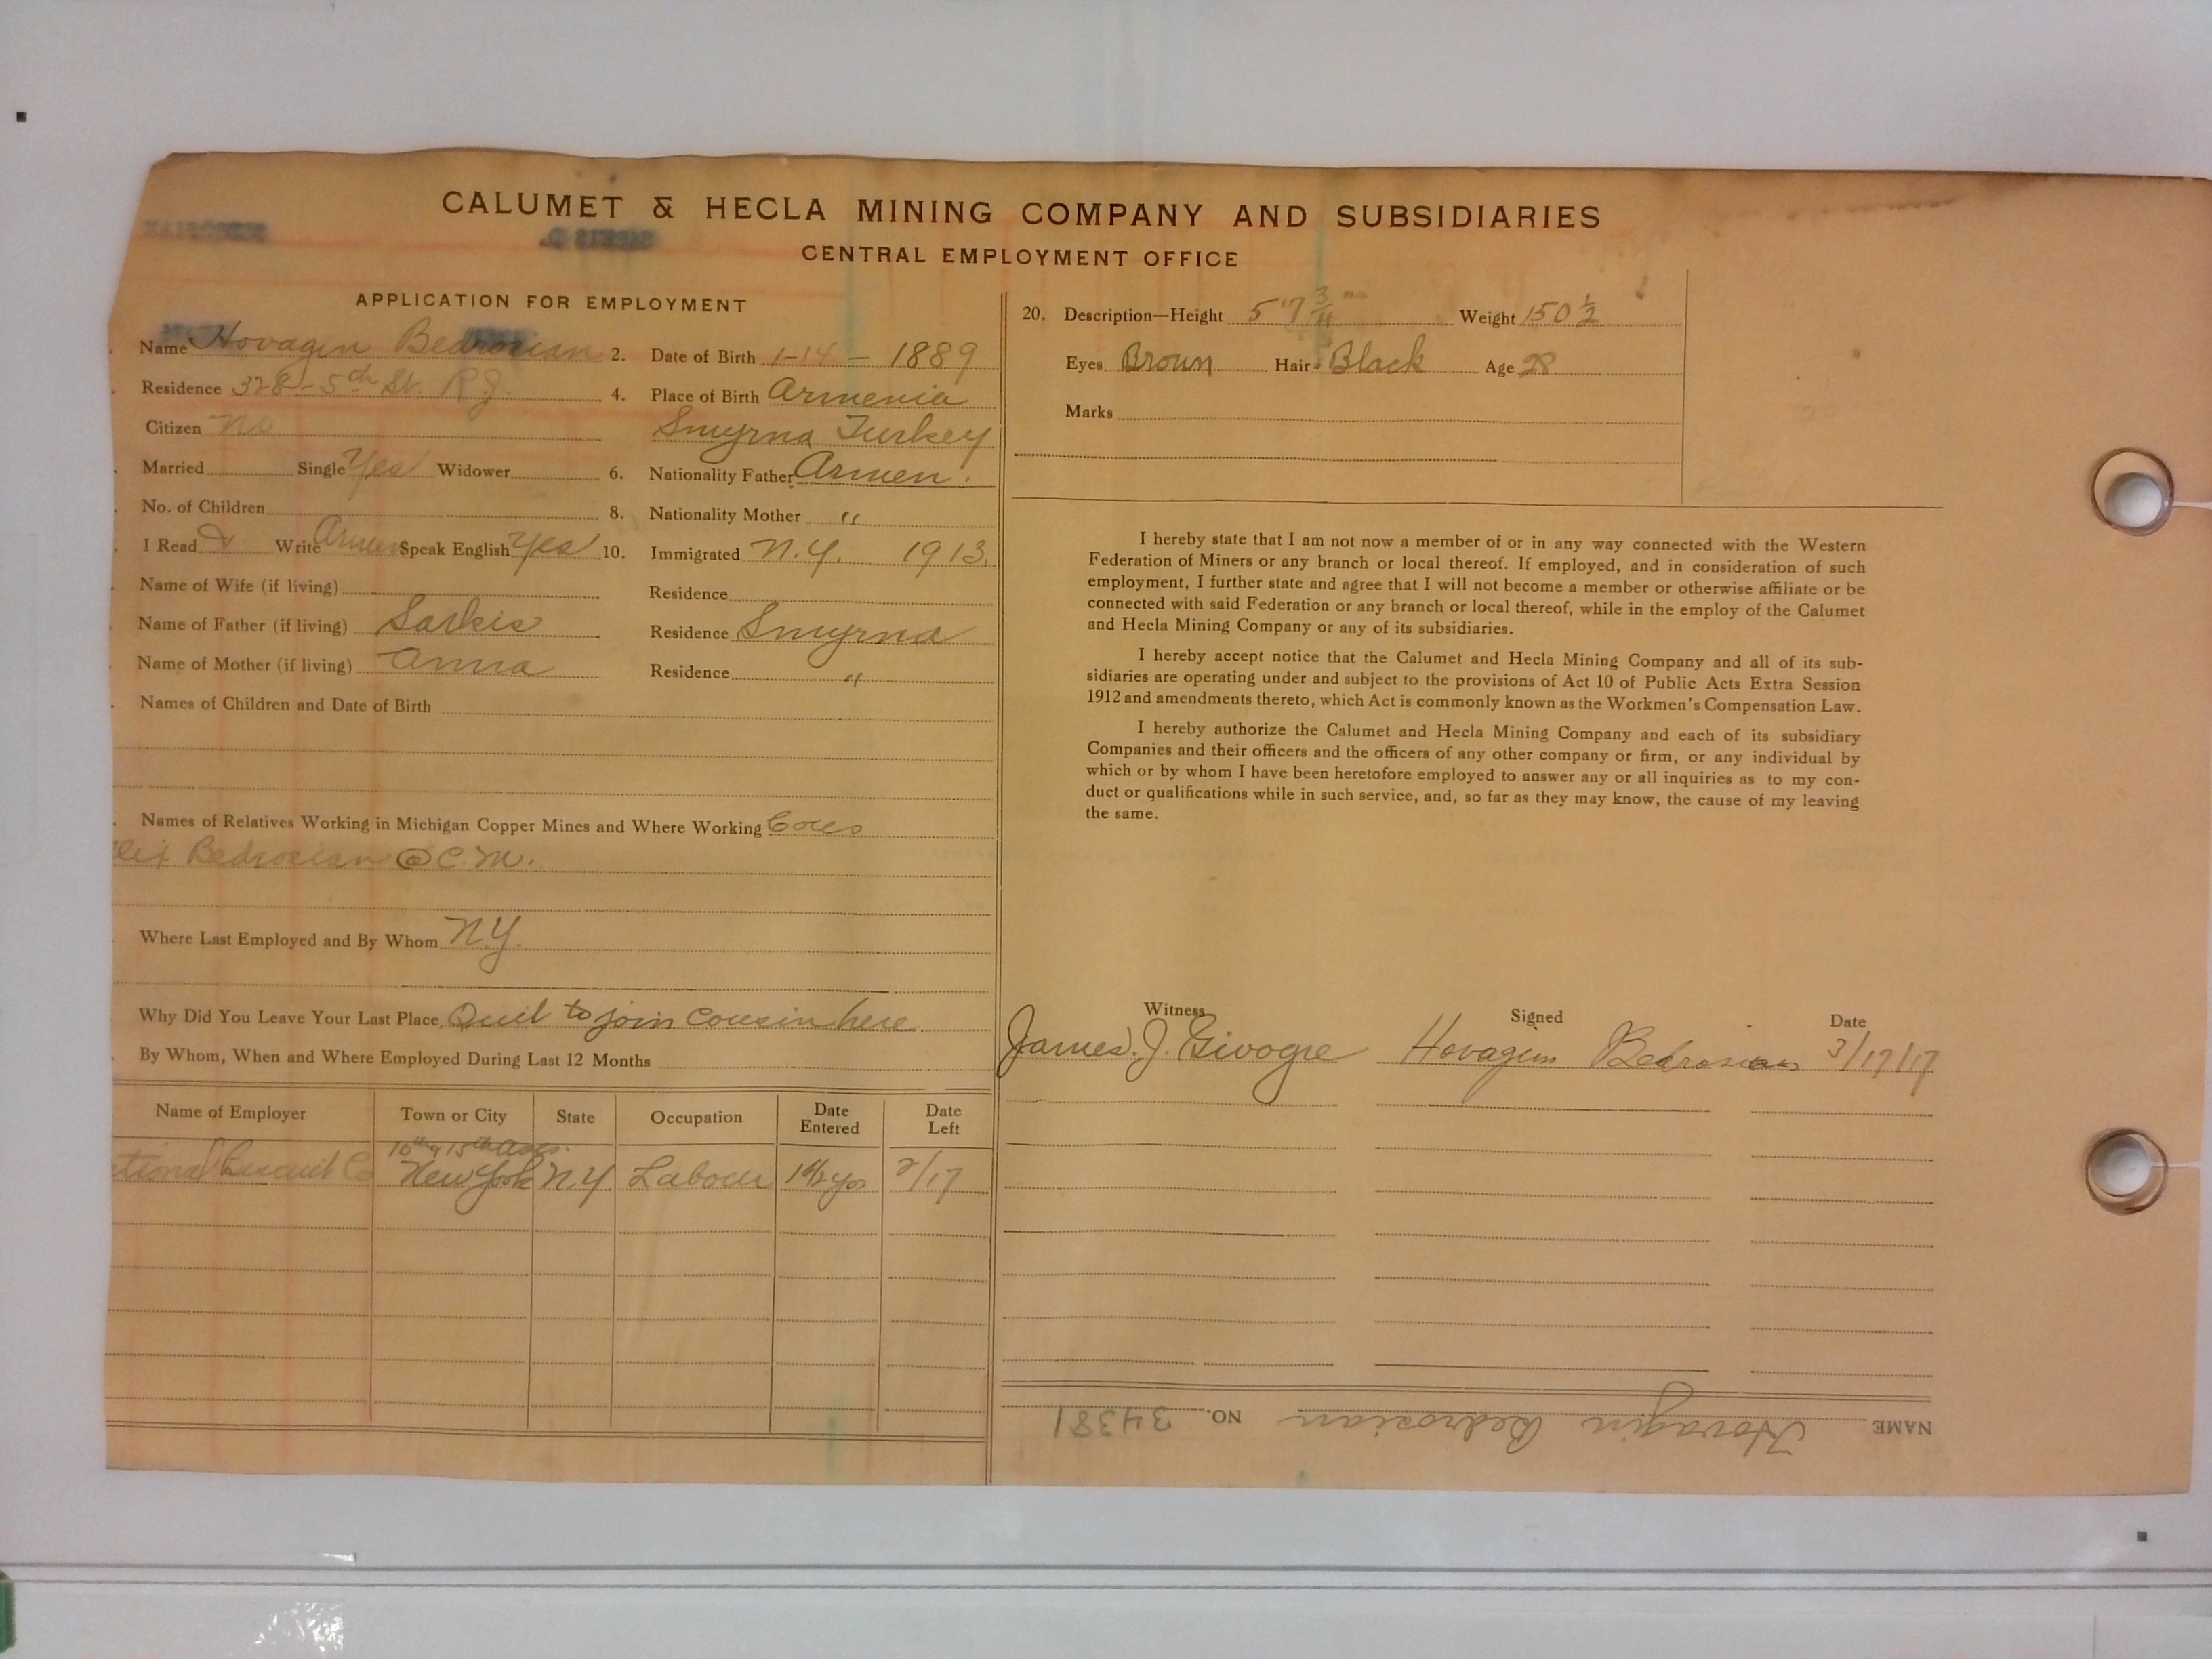 CALUMET & HECLA MINING COMPANY AND SUBSIDIARIES
CENTRAL EMPLOYMENT OFFICE
APPLICATION FOR EMPLOYMENT
Name Hovagin Bedrosian 2. Date of Birth 1-14-1889
Residence 328-5th St. R.J. 4. Place of Birth Armenia
Citizen No Smyrna Turkey
Married Single Yes Widower 6. Nationality Father Armen.
No. of Children 8. Nationality Mother "
I Read & Write Armen Speak English Yes 10. Immigrated N.Y. 1913.
Name of Wife (if living) Residence
Name of Father (if living) Sarkis Residence Smyrna
Name of Mother (if living) Anna Residence "
Names of Children and Date of Birth
Names of Relatives Working in Michigan Copper Mines and Where Working Cous
Bedrosian @ C.M.
Where Last Employed and By Whom N.Y.
Why Did You Leave Your Last Place Quit to join cousin here
By Whom, When and Where Employed During Last 12 Months
Name of Employer Town or City State Occupation Date Entered Date Left
10th & 15th Aves.
tional Biscuit Co New York N.Y Labour 1½ yrs 2/17
20. Description—Height 5'7 3/4" Weight 150 ½
Eyes Brown Hair Black Age 28
Marks
I hereby state that I am not now a member of or in any way connected with the Western
Federation of Miners or any branch or local thereof. If employed, and in consideration of such
employment, I further state and agree that I will not become a member or otherwise affiliate or be
connected with said Federation or any branch or local thereof, while in the employ of the Calumet
and Hecla Mining Company or any of its subsidiaries.
I hereby accept notice that the Calumet and Hecla Mining Company and all of its sub-
sidiaries are operating under and subject to the provisions of Act 10 of Public Acts Extra Session
1912 and amendments thereto, which Act is commonly known as the Workmen's Compensation Law.
I hereby authorize the Calumet and Hecla Mining Company and each of its subsidiary
Companies and their officers and the officers of any other company or firm, or any individual by
which or by whom I have been heretofore employed to answer any or all inquiries as to my con-
duct or qualifications while in such service, and, so far as they may know, the cause of my leaving
the same.
Witness Signed Date
James. J. Hovagim Bedrosian 3/17/17
NAME Hovagin Bedrosian NO. 34381